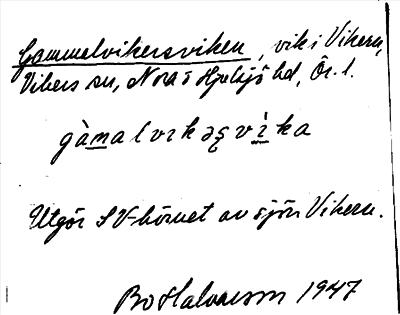 Gammelvikersviken, vik i Vikern,
Vikers sn, Nora o Hjulsjö hd, Ör. l.
gàmalvɪkəʂvɪ̀ka
Utgör SV-hörnet av sjön Vikern.
Bo Halvarson 1947